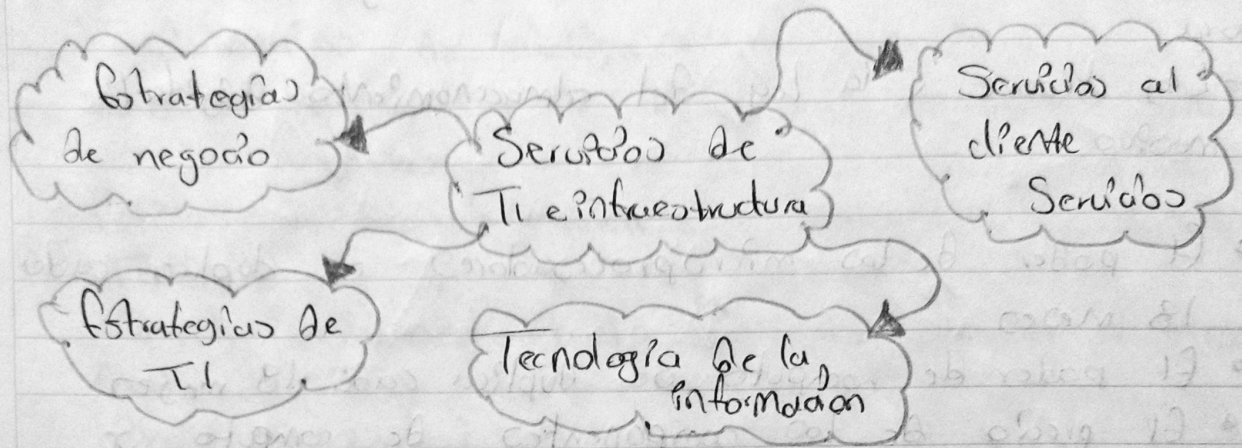 Estrategias
de negocio
Servicios de
TI e infraestructura
Servicios al
cliente
Servicios
Estrategias de
TI
Tecnología de la
información